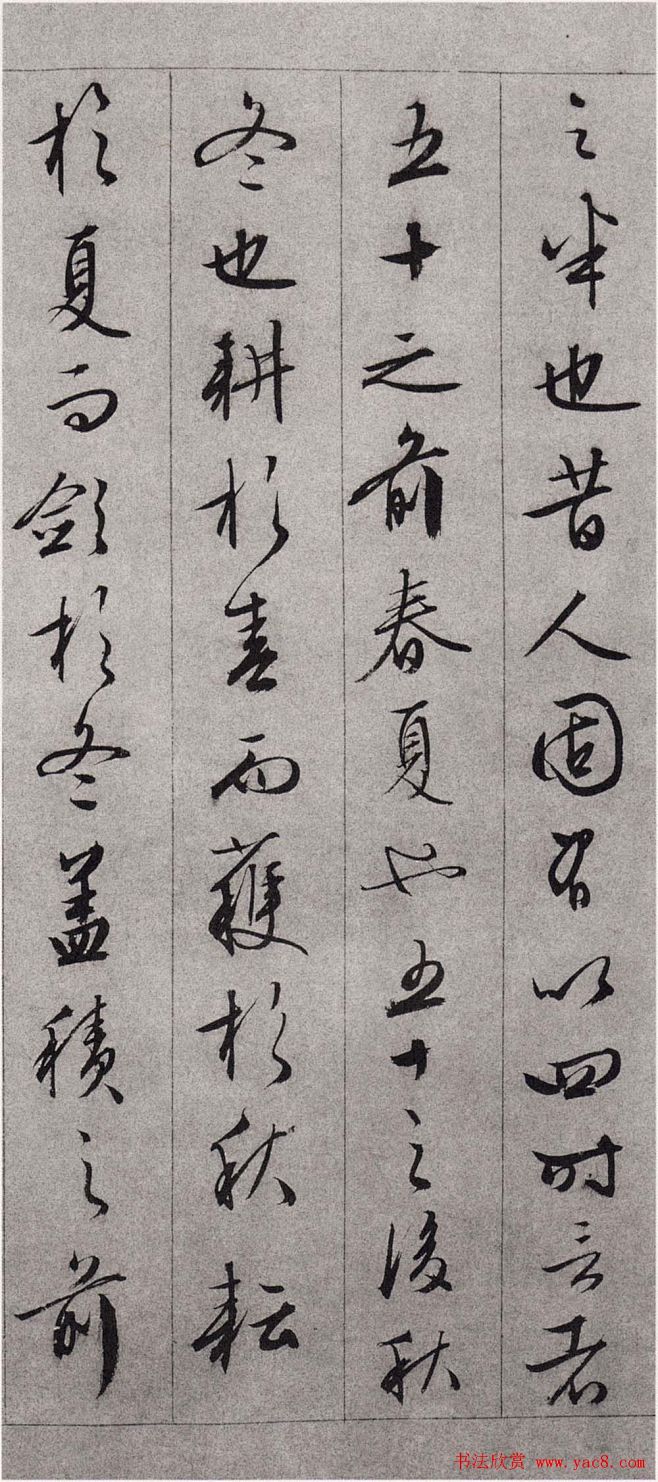 之半也昔人固有以四时言者
五十之前春夏也五十之後秋
冬也耕於春而穫於秋耘
於夏而斂於冬蓋積之前
书法欣赏 www.yac8.com